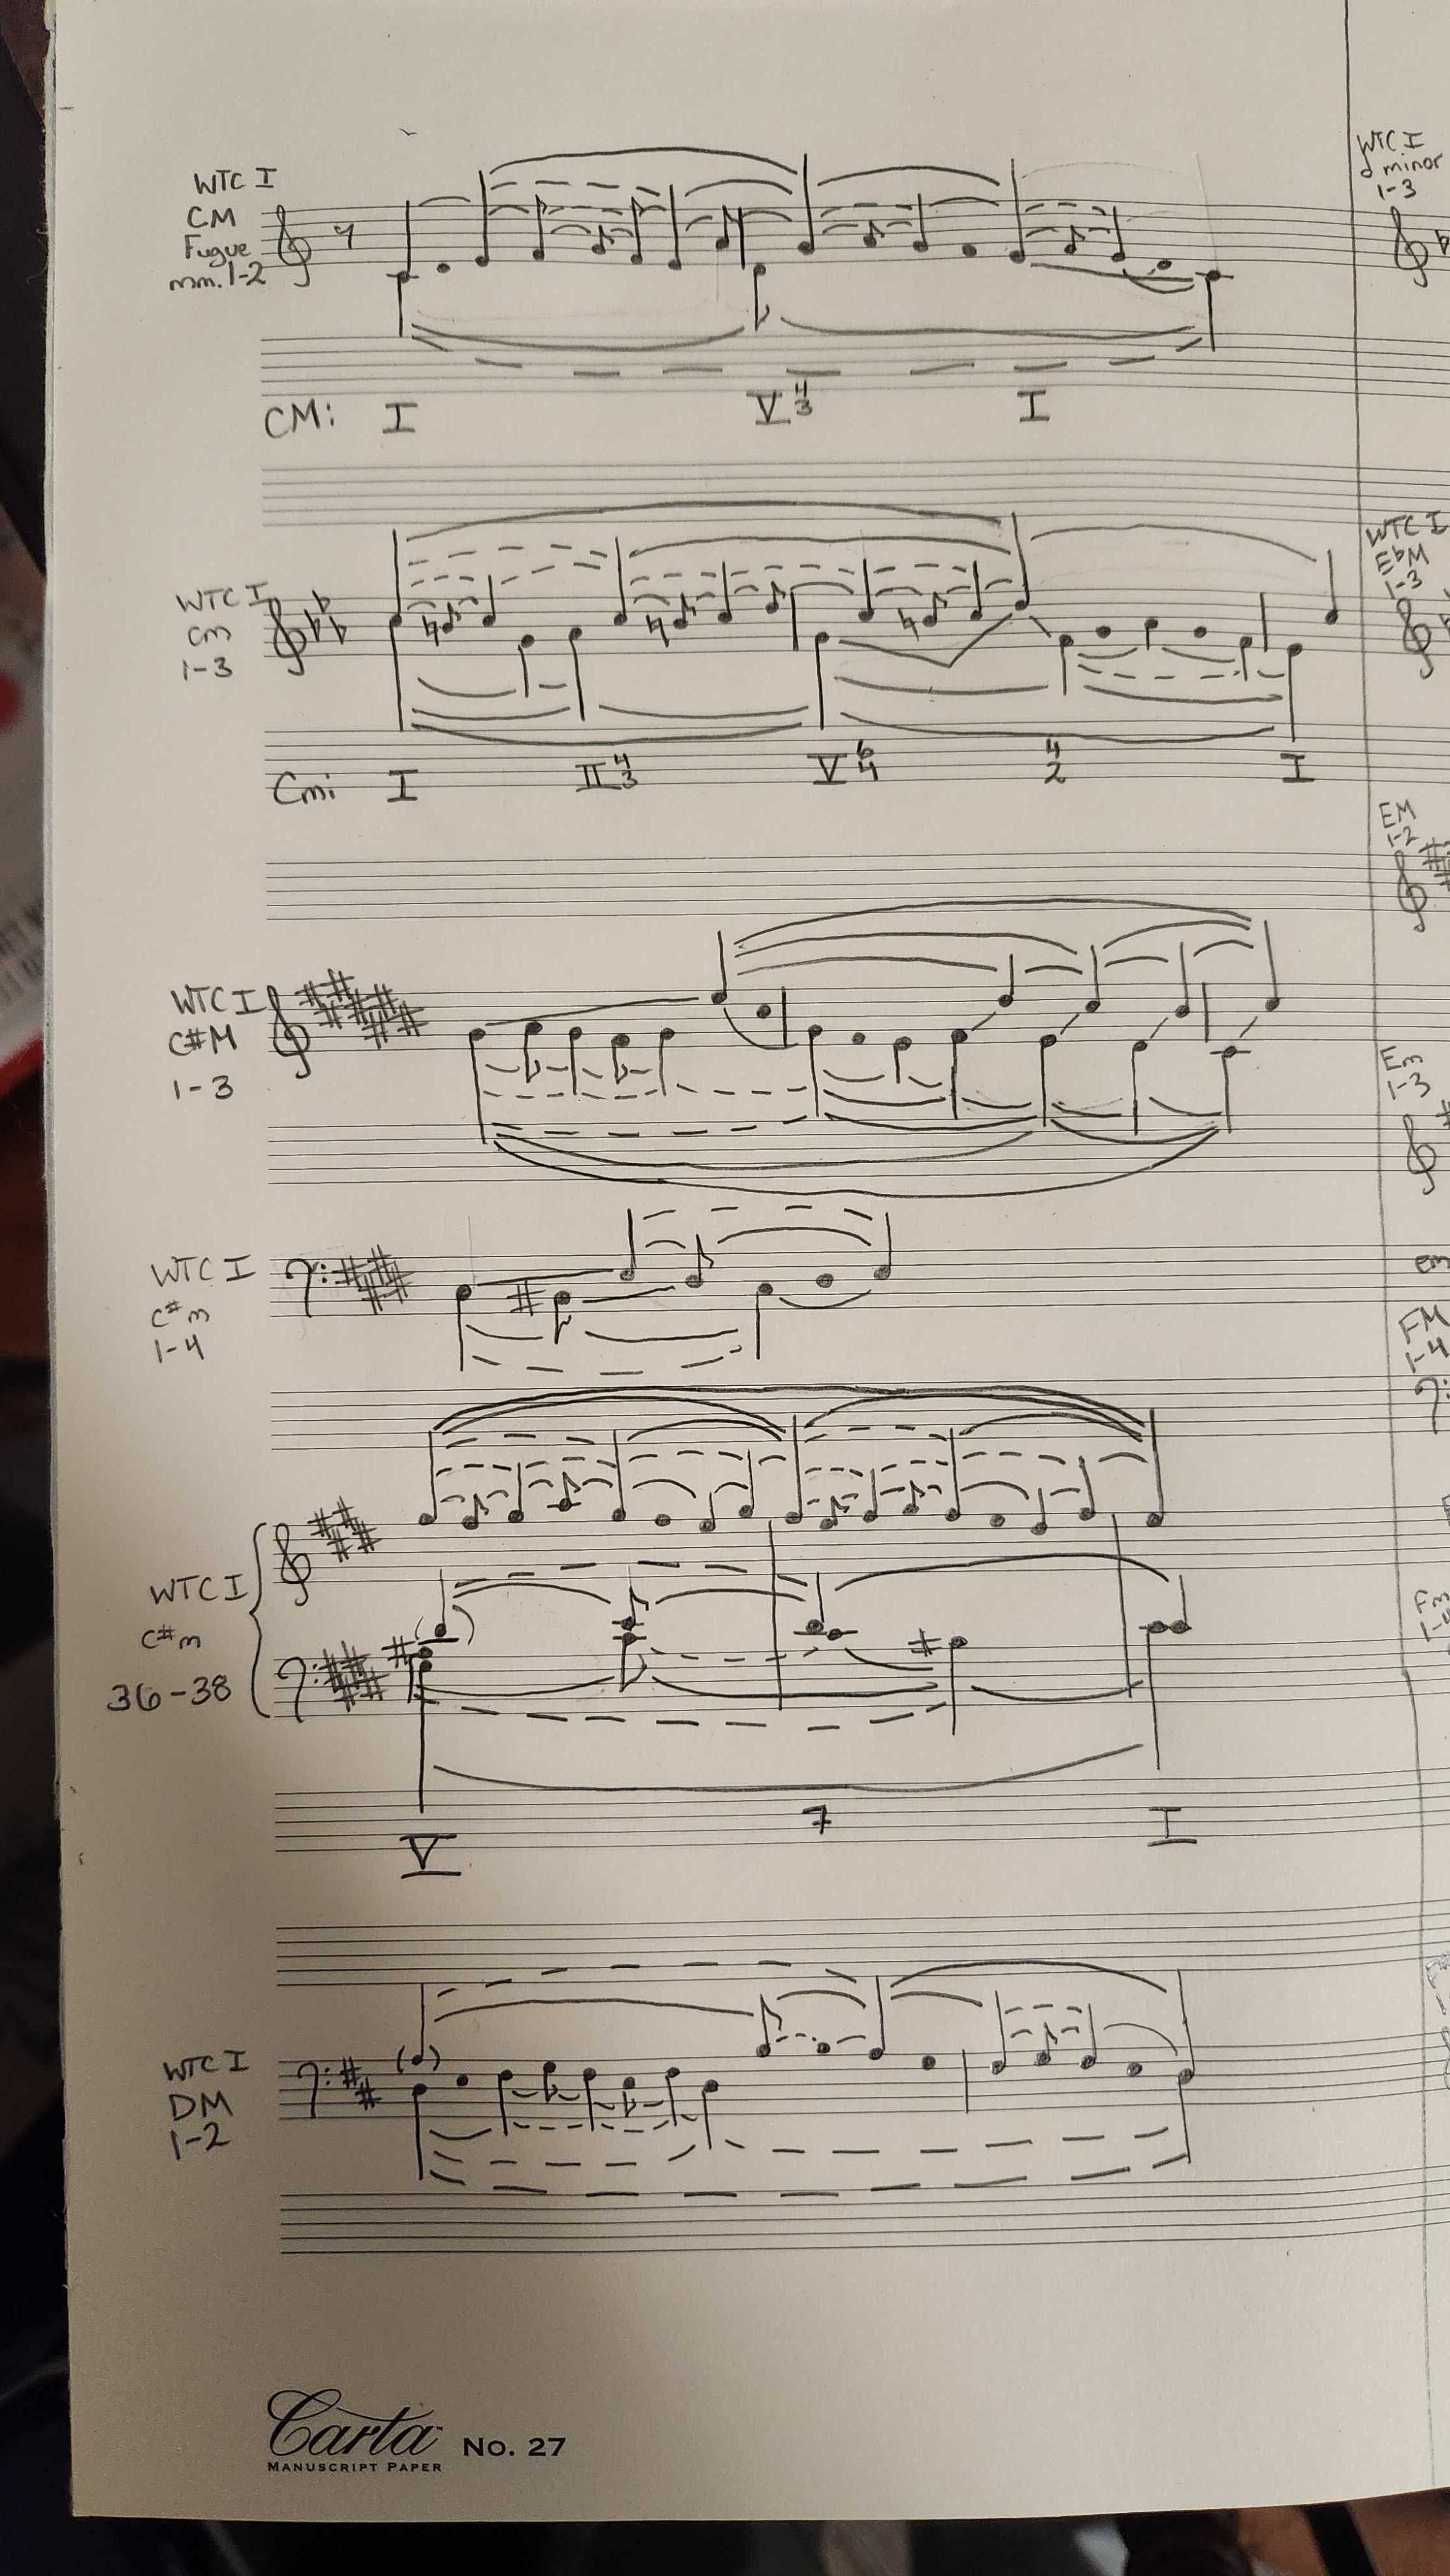 WTC I
CM
Fugue
mm. 1-2
CM: I V 4 3 I
WTC I
Cm
1-3
Cmi I II 4 3 V 6 4 4 2 I
WTC I
C#M
1-3
WTC I
C#m
1-4
WTC I
C#m
36-38
V 7 I
WTC I
DM
1-2
WTC I
d minor
1-3
WTC I
EbM
1-3
EM
1-2
Em
1-3
em
FM
1-4
Fm
Carta
No. 27
MANUSCRIPT PAPER